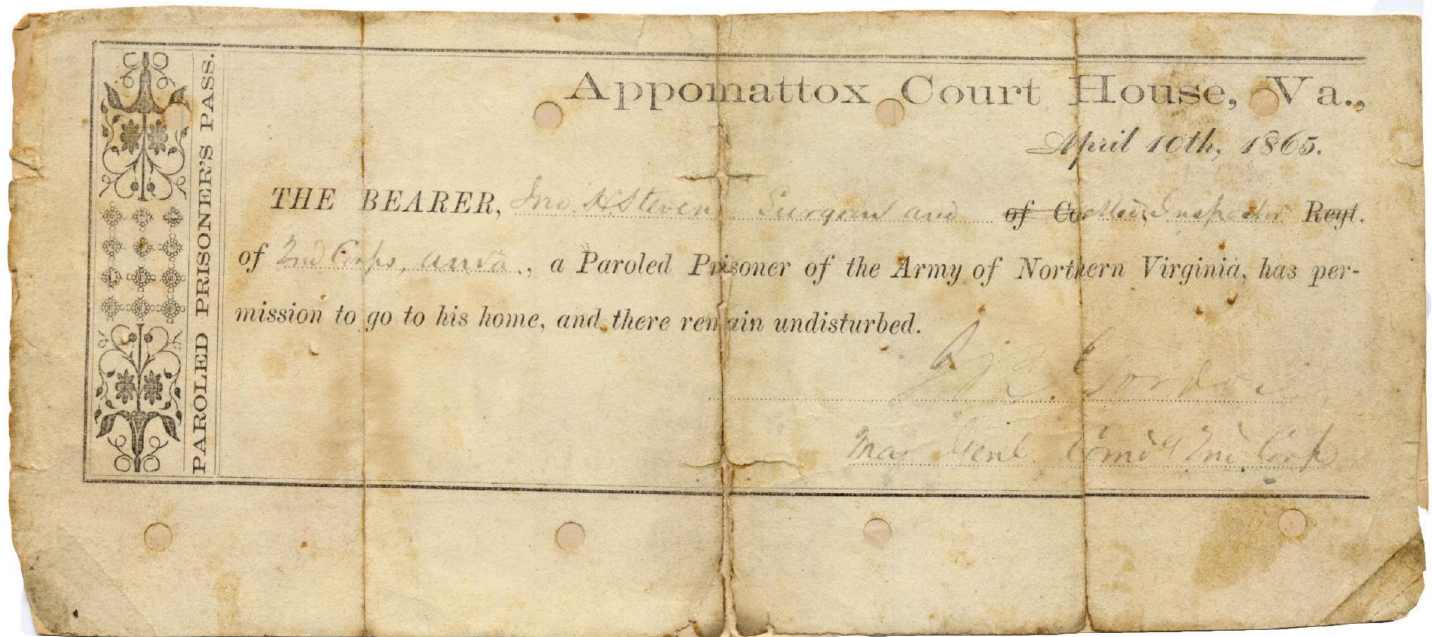 PAROLED PRISONER'S PASS.
Appomattox Court House, Va.,
April 10th, 1865.
THE BEARER, Jno. H Stevens Surgeon and of Co Inspector Regt.
of 2nd Corps, anva., a Paroled Prisoner of the Army of Northern Virginia, has per-
mission to go to his home, and there remain undisturbed.
J B. Gordon
Maj Genl. Comdg 2nd Corps